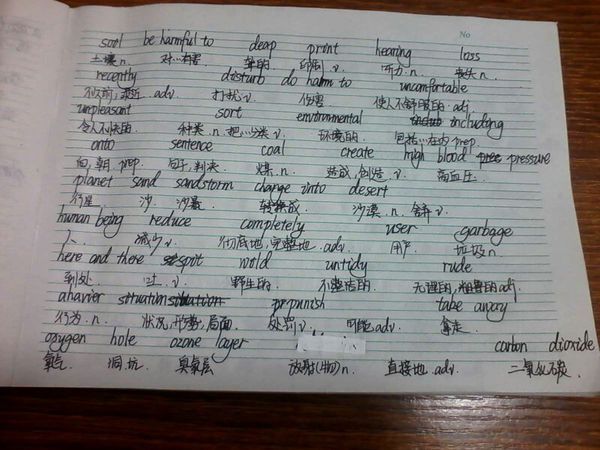 No
sool be harmful to deap print hearing loss
土壤 n. 对…有害 聋的 印刷 v. 听力 n. 丧失 n.
recently disturb do harm to uncomfortable
不久前,最近 adv 打扰 v. 伤害 使人不舒服的 adj
unpleasant sort environmental including
令人不快的 种类 n. 把…分类 v. 环境的 包括…在内 prep
onto sentence coal create high blood pressure
向,朝 prep 句子,判决 煤 n. 造成,创造 v. 高血压
planet sand sandstorm change into desert
行星 沙 沙暴 转换成 沙漠 n. 舍弃 v.
human being reduce completely user garbage
人 减少 v. 彻底地,完整地 adv. 用户 垃圾 n
here and there spot wold untidy rude
到处 吐 v. 野生的 不整洁的 无理的,粗鲁的 adj
ahavier situation punish take away
行为 n. 状况,形势,局面 处罚 v. 可能 adv. 拿走
oxygen hole ozone layer carbon dioxide
氧气 洞,坑 臭氧层 放射(物) n 直接地 adv. 二氧化碳